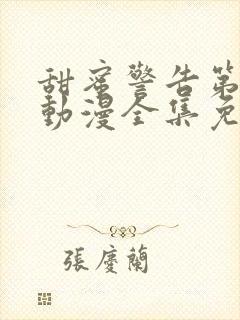 甜蜜警告第
動漫全集免
張慶蘭